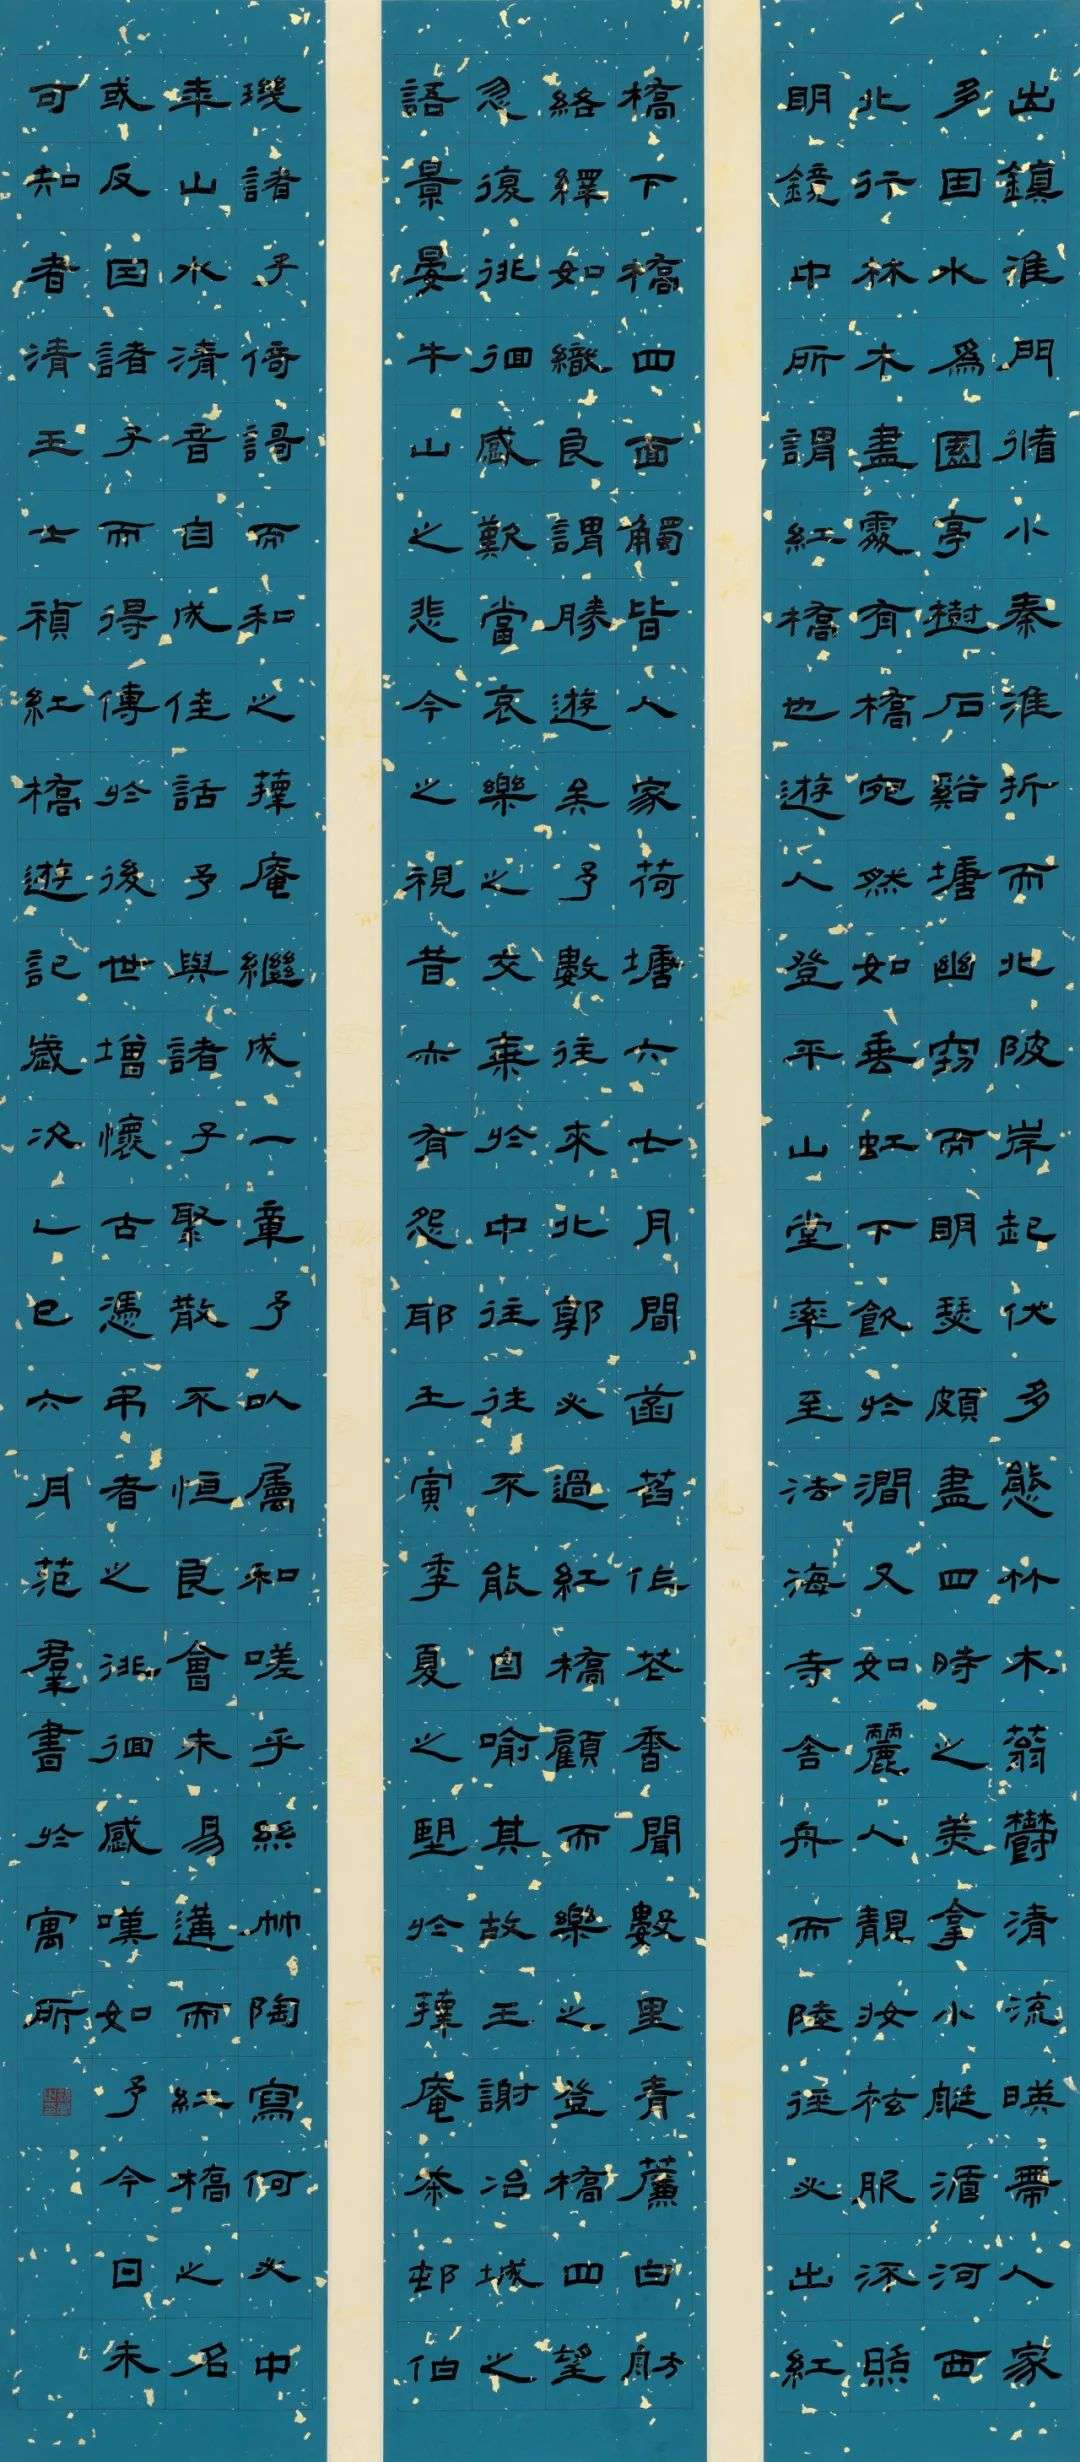 出鎮淮門循小秦淮折而北陂岸起伏多態竹木蓊鬱清流映帶人家
多因水為園亭樹石谿塘幽窈而明瑟頗盡四時之美拿小艇循河西
北行林木盡處有橋宛然如垂虹下飲於澗又如麗人靚妝袨服流照
明鏡中所謂紅橋也遊人登平山堂率至法海寺舍舟而陸徑必出紅
橋下橋四面觸皆人家荷塘六七月間菡萏作花香聞數里青簾白舫
絡繹如織良謂勝遊矣予數往來北郭必過紅橋顧而樂之登橋四望
忽復徘徊感歎當哀樂之交乘於中往往不能自喻其故王謝冶城之
語景晏牛山之悲今之視昔亦有怨耶壬寅季夏之望於蘀庵茶邨伯
璣諸子倚謌而和之蘀庵繼成一章予以屬和嗟乎絲竹陶寫何必中
年山水清音自成佳話予與諸子聚散不恒良會未易遘而紅橋之名
或反因諸子而得傳於後世增懷古憑弔者之徘徊感嘆如予今日未
可知者清王士禎紅橋遊記歲次乙巳六月范羣書於寓所